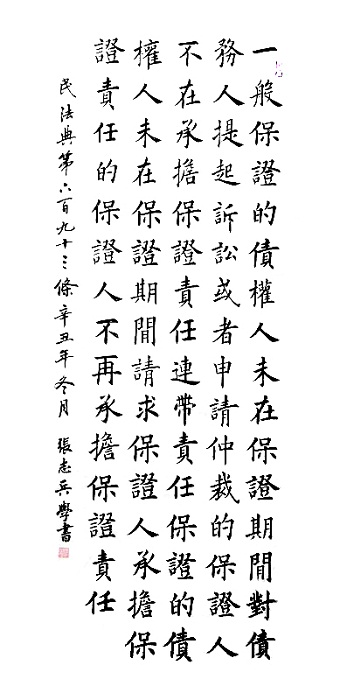 一般保證的債權人未在保證期間對債
務人提起訴訟或者申請仲裁的保證人
不在承擔保證責任連帶責任保證的債
權人未在保證期間請求保證人承擔保
證責任的保證人不再承擔保證責任
民法典第六百九十三條辛丑年冬月 張志兵學書